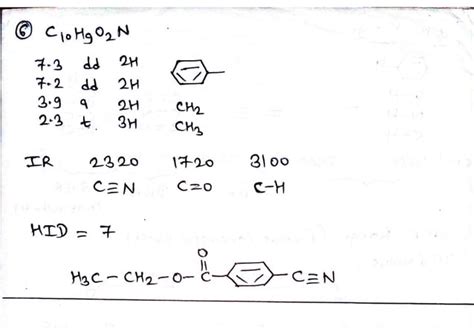 ⑥ C₁₀H₉O₂N
7.3 dd 2H
7.2 dd 2H
3.9 q 2H CH₂
2.3 t. 3H CH₃
IR 2320 1720 3100
C≡N C=O C-H
HID = 7
O
H₃C-CH₂-O-C-C≡N